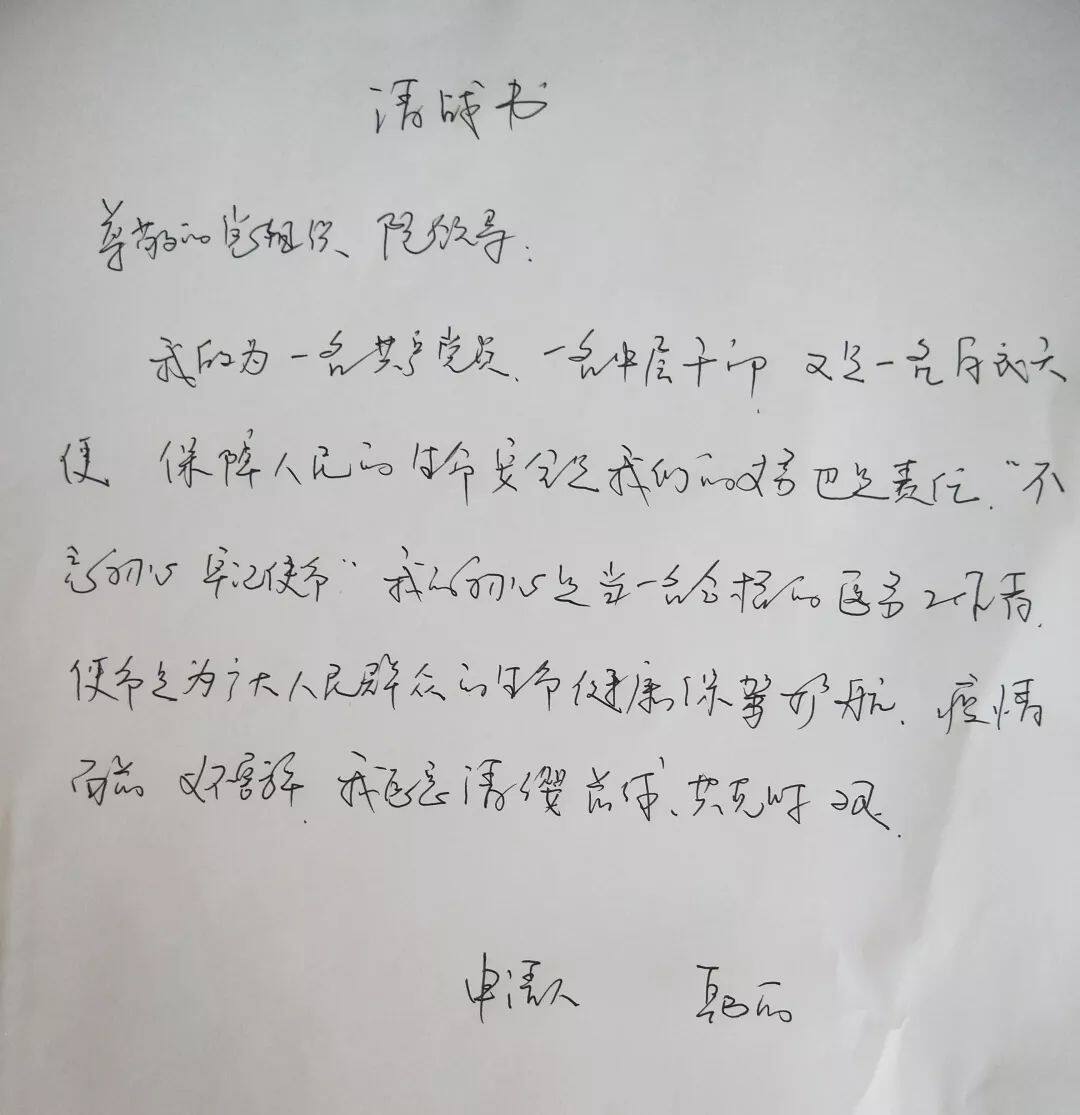 请战书
尊敬的党组织、院领导:
我作为一名共产党员、一名中层干部 又是一名白衣天
使 保障人民的生命安全是我们的义务也是责任. "不
忘初心 牢记使命" 我的初心是当一名合格的医务工作者.
使命是为广大人民群众的生命健康保驾护航. 疫情
面前 义不容辞. 我自愿请缨前线、共克时艰.
申请人